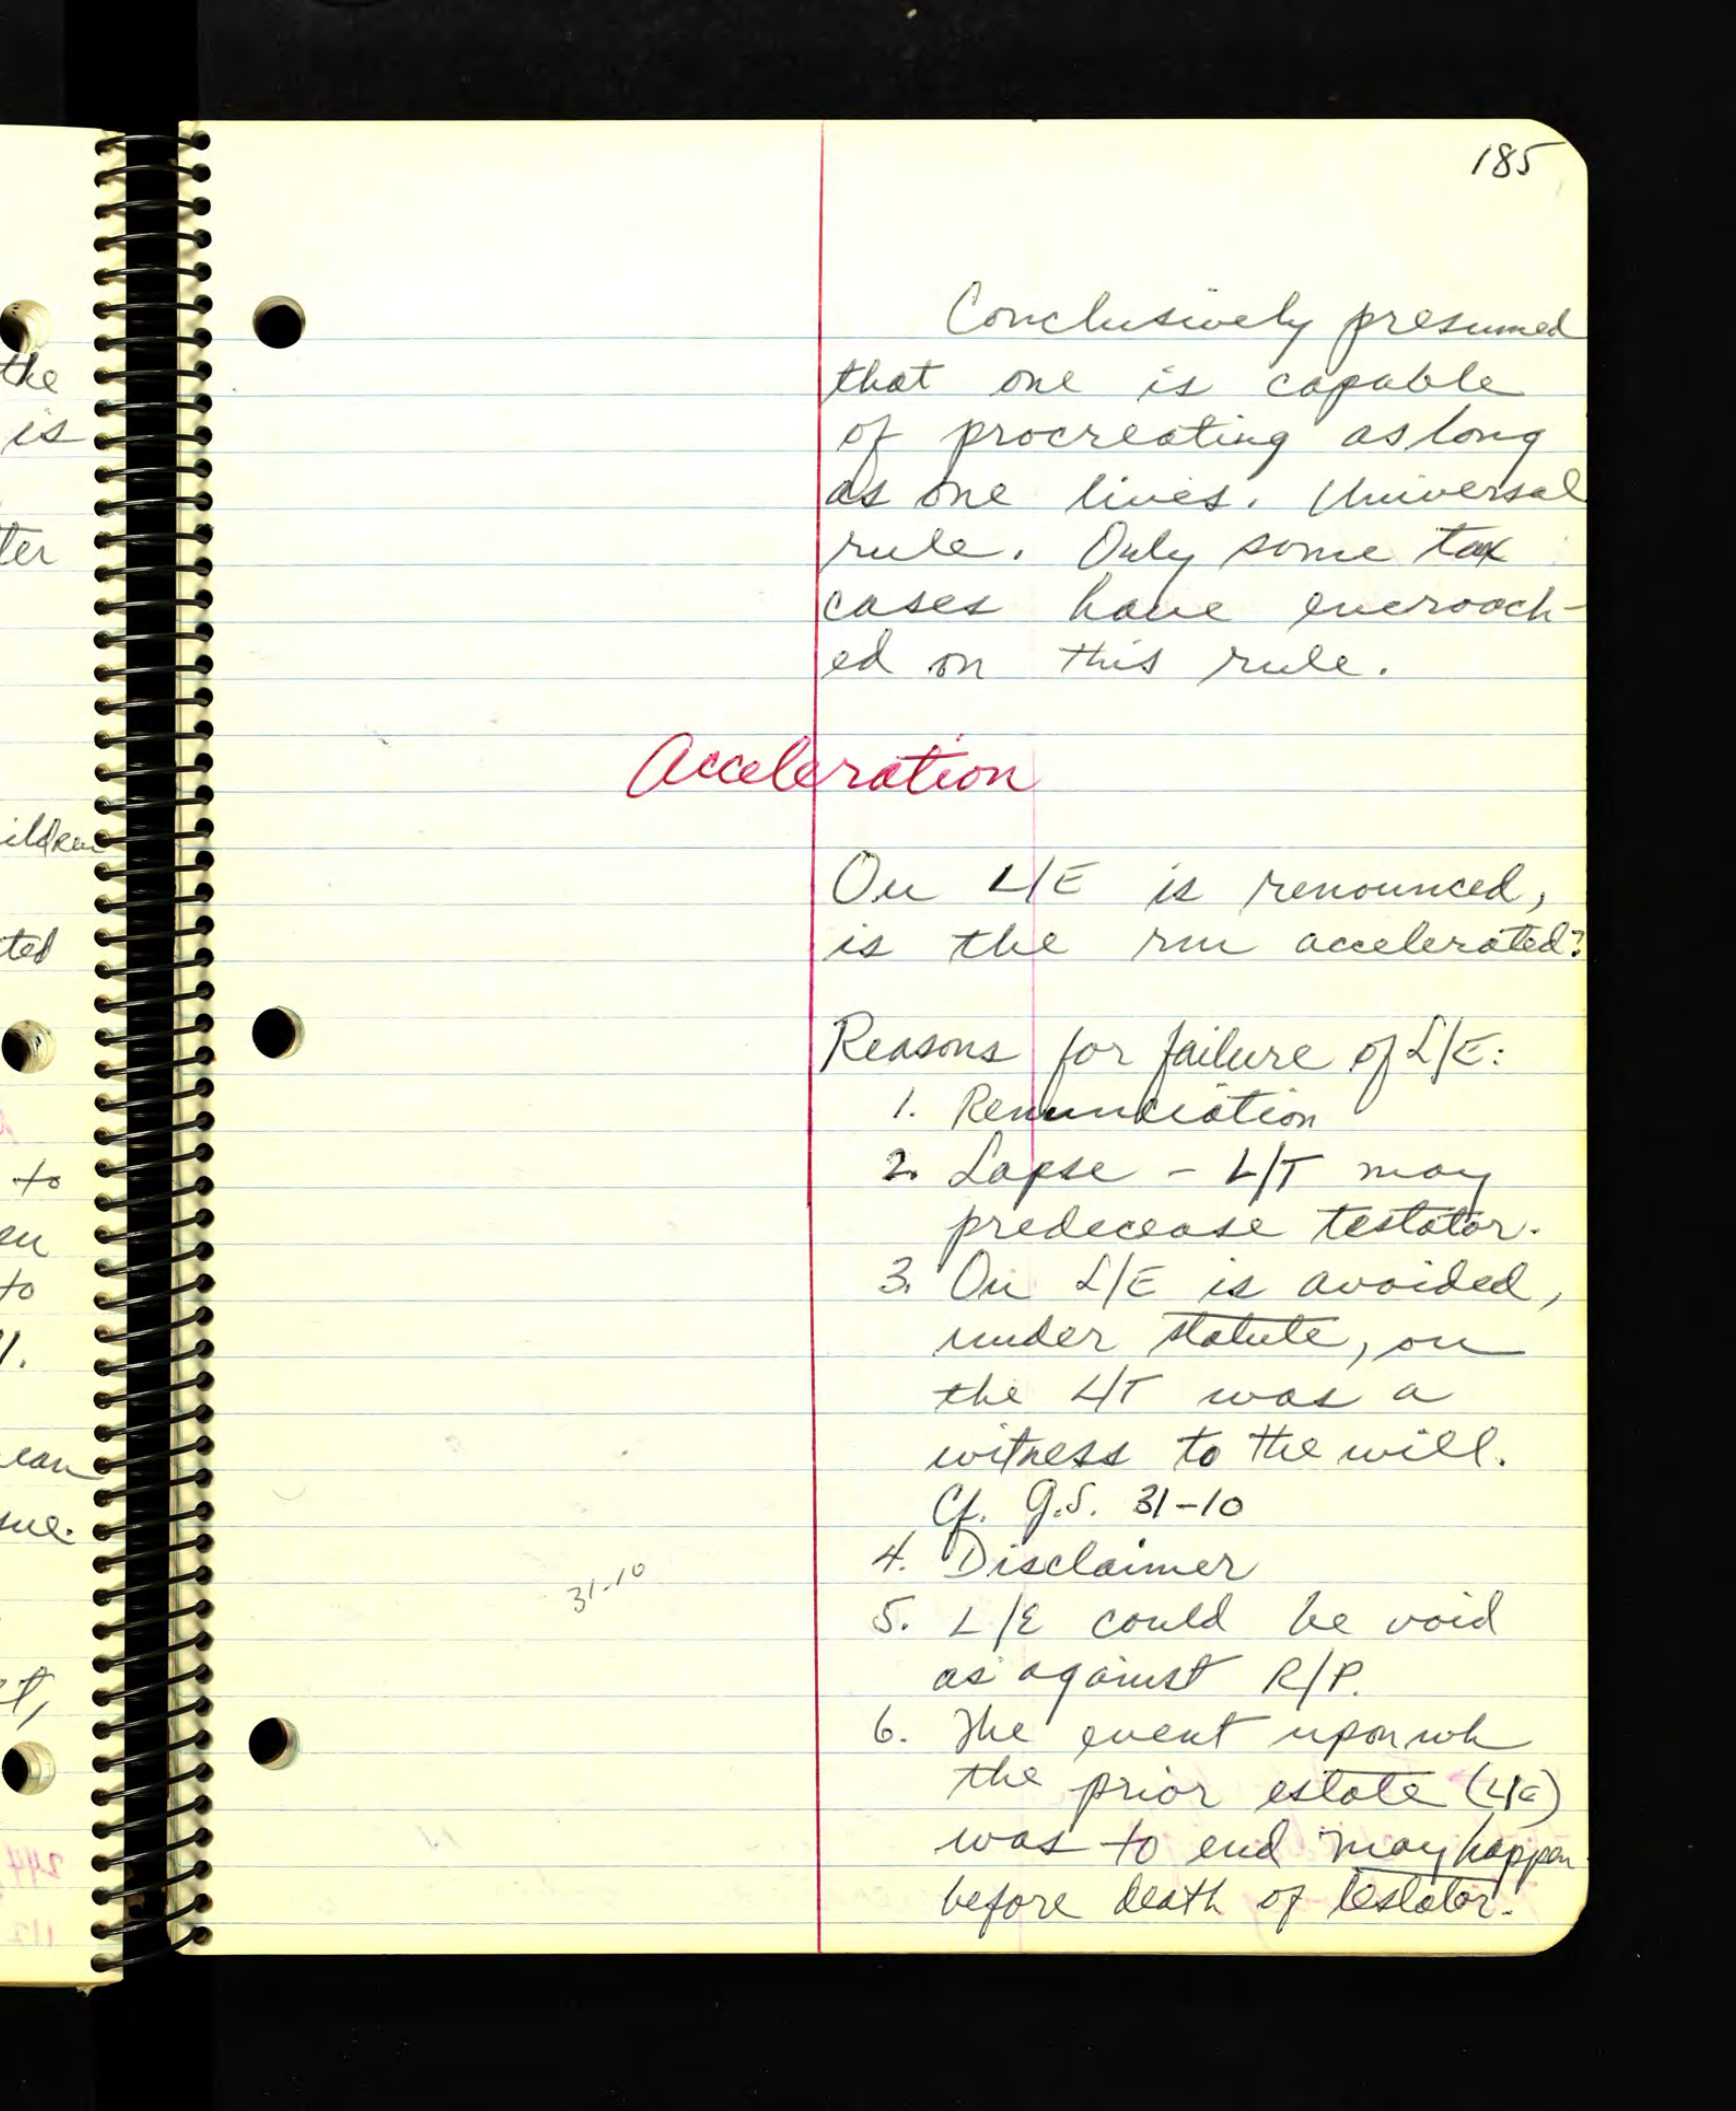 185
Conclusively presumed
that one is capable
of procreating as long
as one lives. Universal
rule. Only some tax
cases have encroach-
ed on this rule.
Acceleration
On L/E is renounced,
is the rm accelerated?
Reasons for failure of L/E:
1. Renunciation
2. Lapse - L/T may
predecease testator.
3. On L/E is avoided,
under statute, on
the L/T was a
witness to the will.
Cf. G.S. 31-10
4. Disclaimer
31-10
5. L/E could be void
as against R/P.
6. The event upon wh
the prior estate (L/E)
was to end may happen
before death of testator.
the
is
ter
ildren
ted
to
en
to
ean
sue.